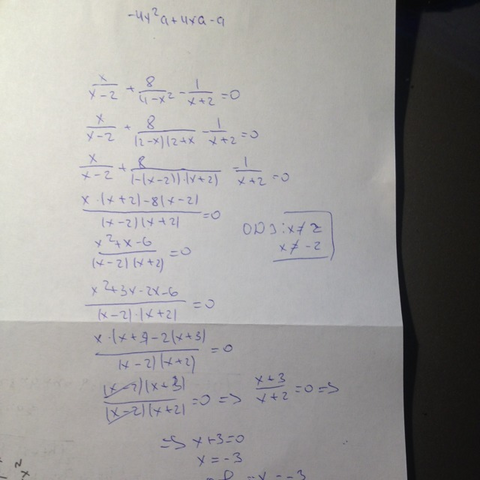 -4x²a+4xa-a
x/(x-2) + 8/(4-x²) - 1/(x+2) = 0
x/(x-2) + 8/((2-x)(2+x - 1/(x+2) = 0
x/(x-2) + 8/((-(x-2))·(x+2) - 1/(x+2) = 0
(x·(x+2)-8(x-2))/((x-2)(x+2)) = 0
ODJ: x≠2
x≠-2
(x²+x-6)/((x-2)(x+2)) = 0
(x²+3x-2x-6)/((x-2)·(x+2)) = 0
(x·(x+3)-2(x+3))/((x-2)(x+2)) = 0
((x-2)(x+3))/((x-2)(x+2)) = 0 => (x+3)/(x+2) = 0 =>
=> x+3=0
x=-3